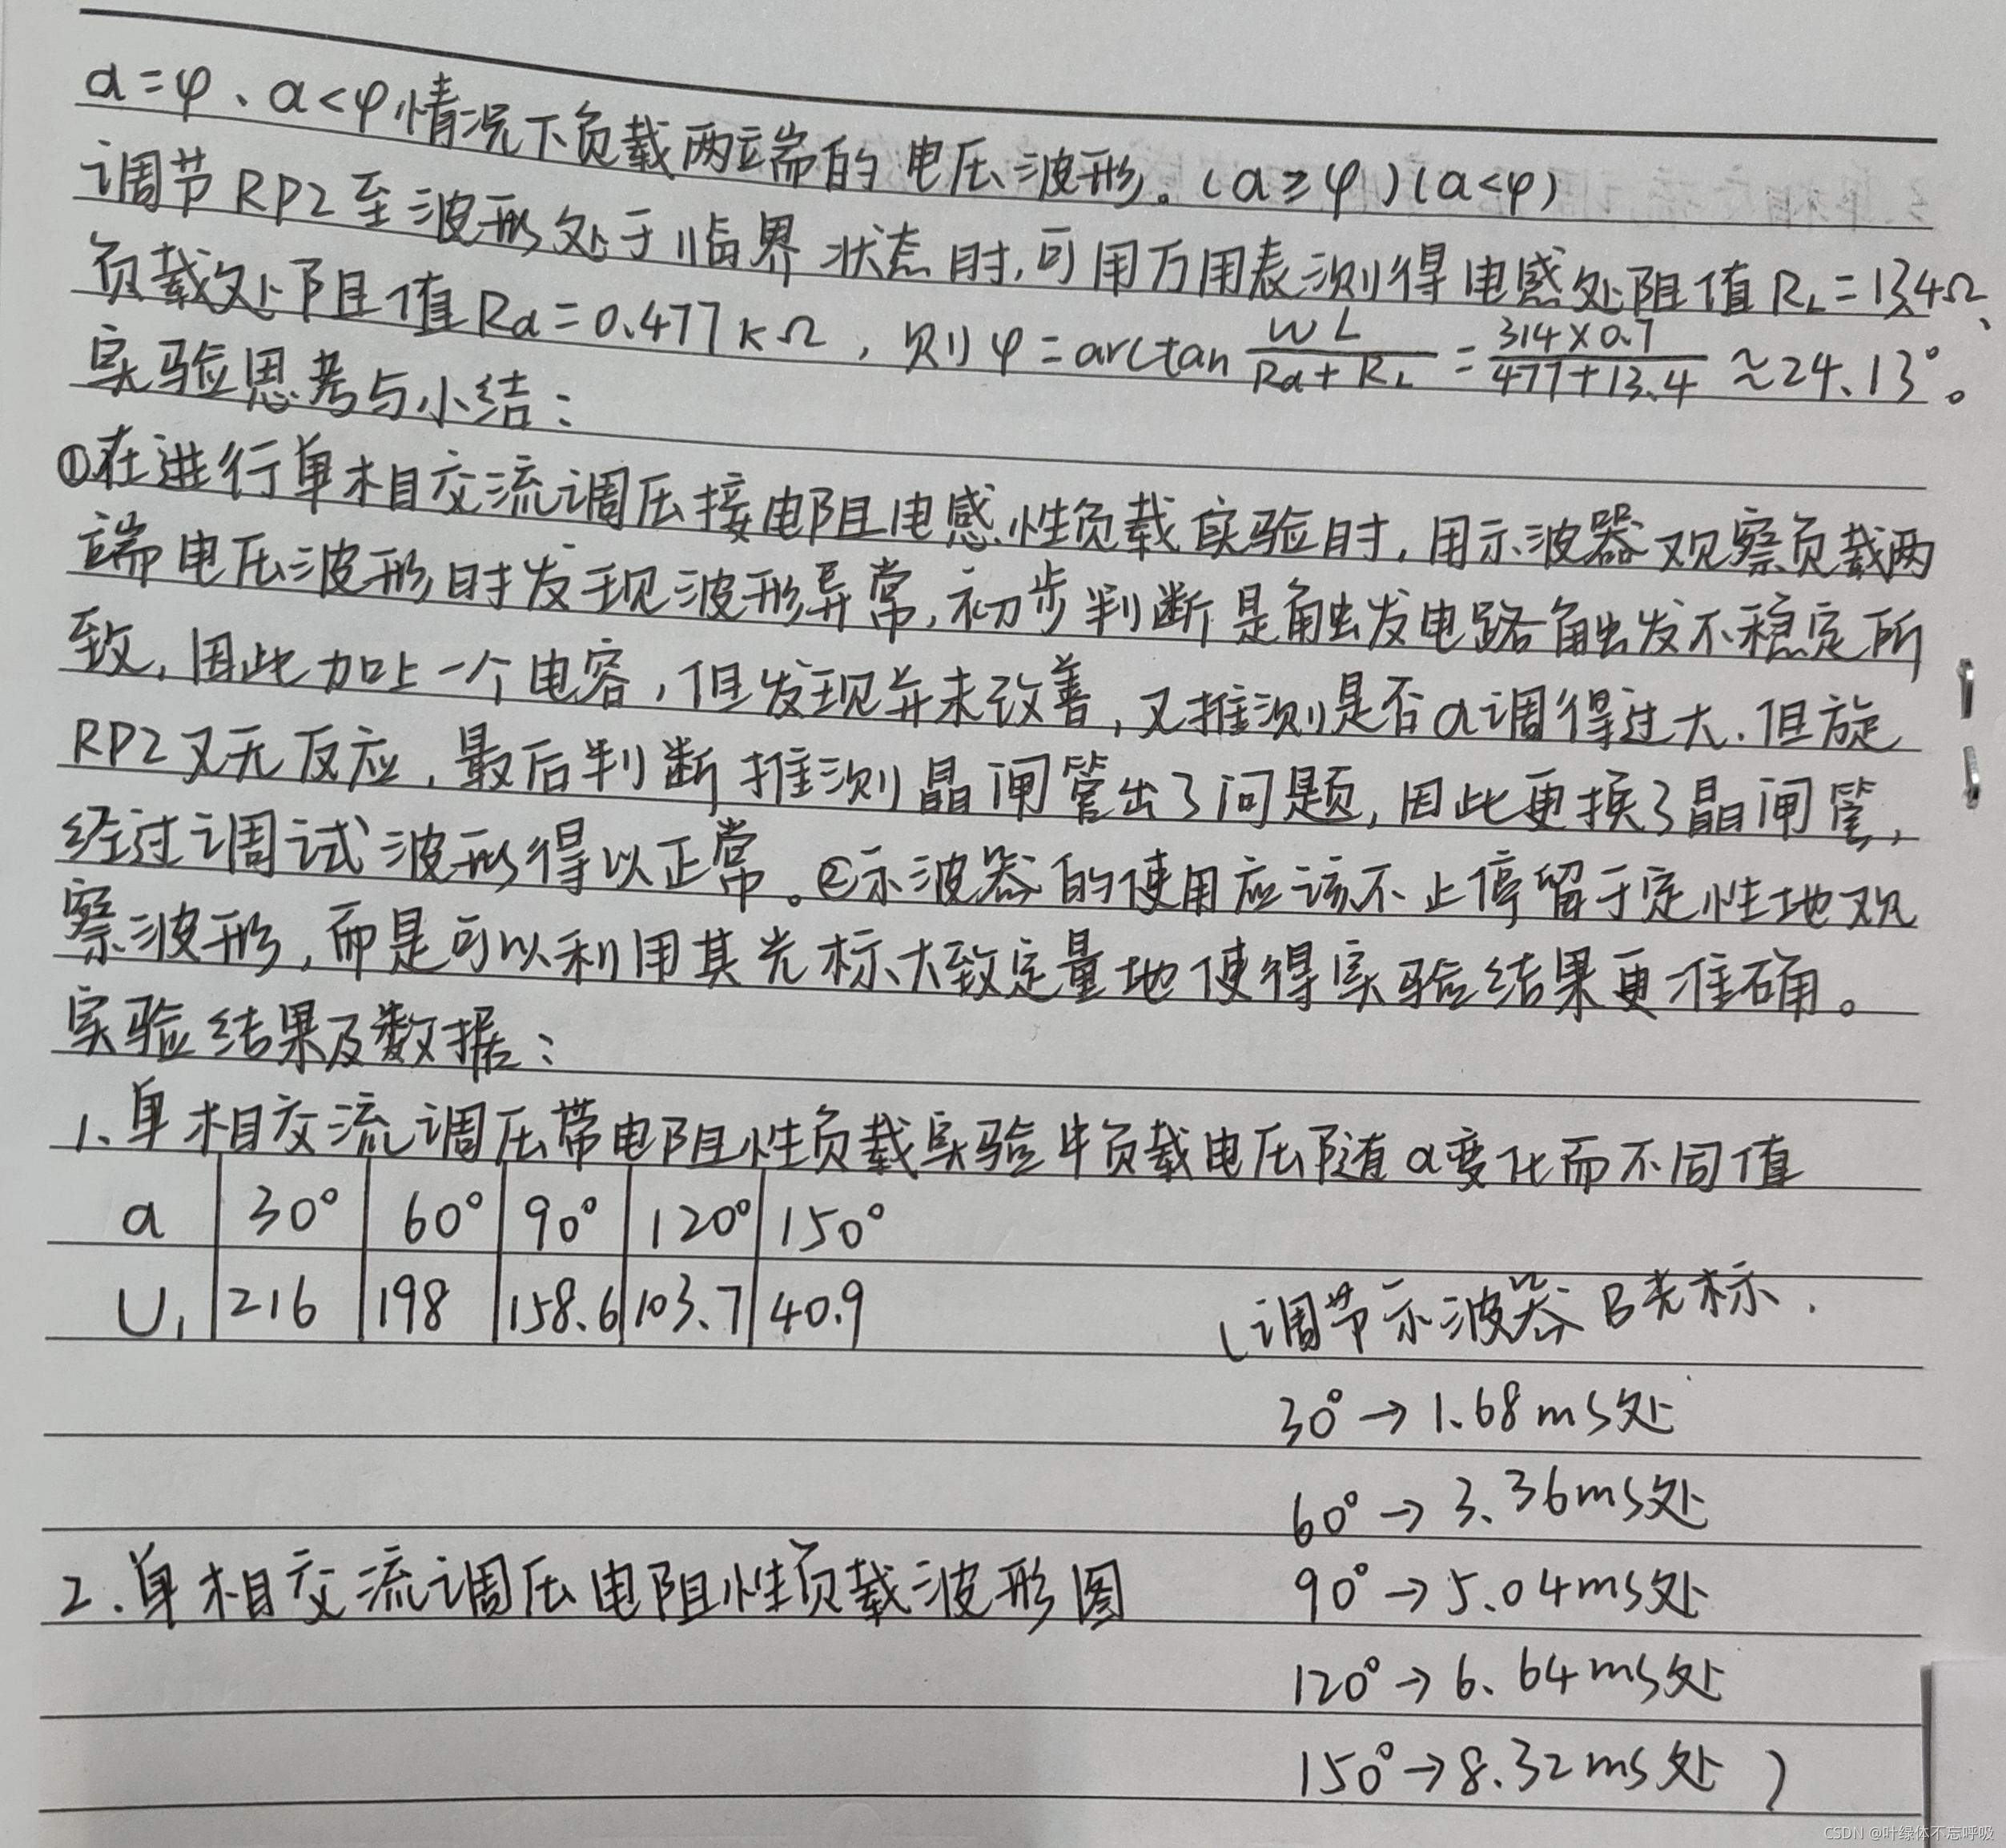 α=φ、α<φ情况下负载两端的电压波形。(α≥φ)(α<φ)
调节RP2至波形处于临界状态时,可用万用表测得电感处阻值RL=13.4Ω、
负载处阻值Rd=0.477kΩ,则φ=arctan ωL/(Rd+RL) = (314×0.7)/(477+13.4) ≈24.13°。
实验思考与小结:
①在进行单相交流调压接电阻电感性负载实验时,用示波器观察负载两
端电压波形时发现波形异常,初步判断是触发电路触发不稳定所
致,因此加上一个电容,但发现并未改善,又推测是否α调得过大.但旋
RP2又无反应,最后判断推测晶闸管出了问题,因此更换了晶闸管,
经过调试波形得以正常。②示波器的使用应该不止停留于定性地观
察波形,而是可以利用其光标大致定量地使得实验结果更准确。
实验结果及数据:
1、单相交流调压带电阻性负载实验中负载电压随α变化而不同值
α 30° 60° 90° 120° 150°
U₁ 216 198 158.6 103.7 40.9
(调节示波器B光标.
30°→1.68ms处
60°→3.36ms处
90°→5.04ms处
2.单相交流调压电阻性负载波形图
120°→6.64ms处
150°→8.32ms处)
CSDN @叶绿体不忘呼吸